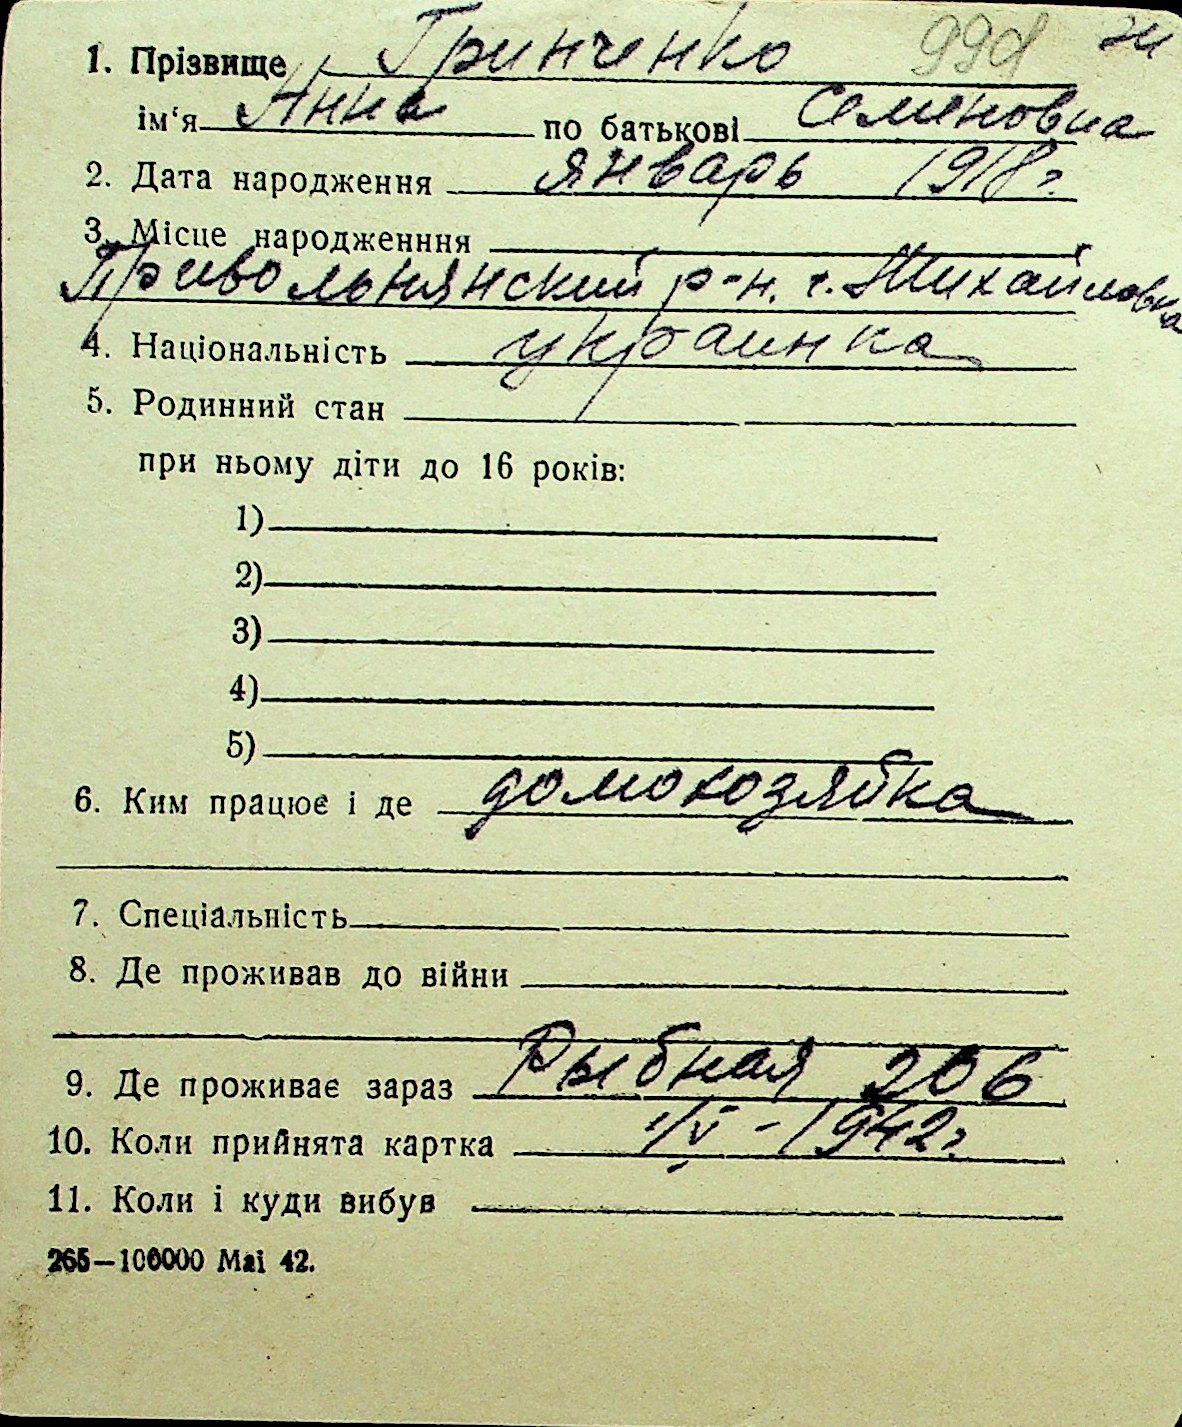 1. Прізвище Гринченко 99
ім‘я Анна по батькові Семеновна
2. Дата народження январь 1918 г.
3. Місце народженння
Привольнянский р-н. с. Михайловка
4. Національність украинка
5. Родинний стан
при ньому діти до 16 років:
1)
2)
3)
4)
5)
6. Ким працює і де домохозяйка
7. Спеціальність
8. Де проживав до війни
9. Де проживає зараз Рыбная 206
10. Коли прийнята картка 1/V-1942 г.
11. Коли і куди вибув
265—100000 Mai 42.